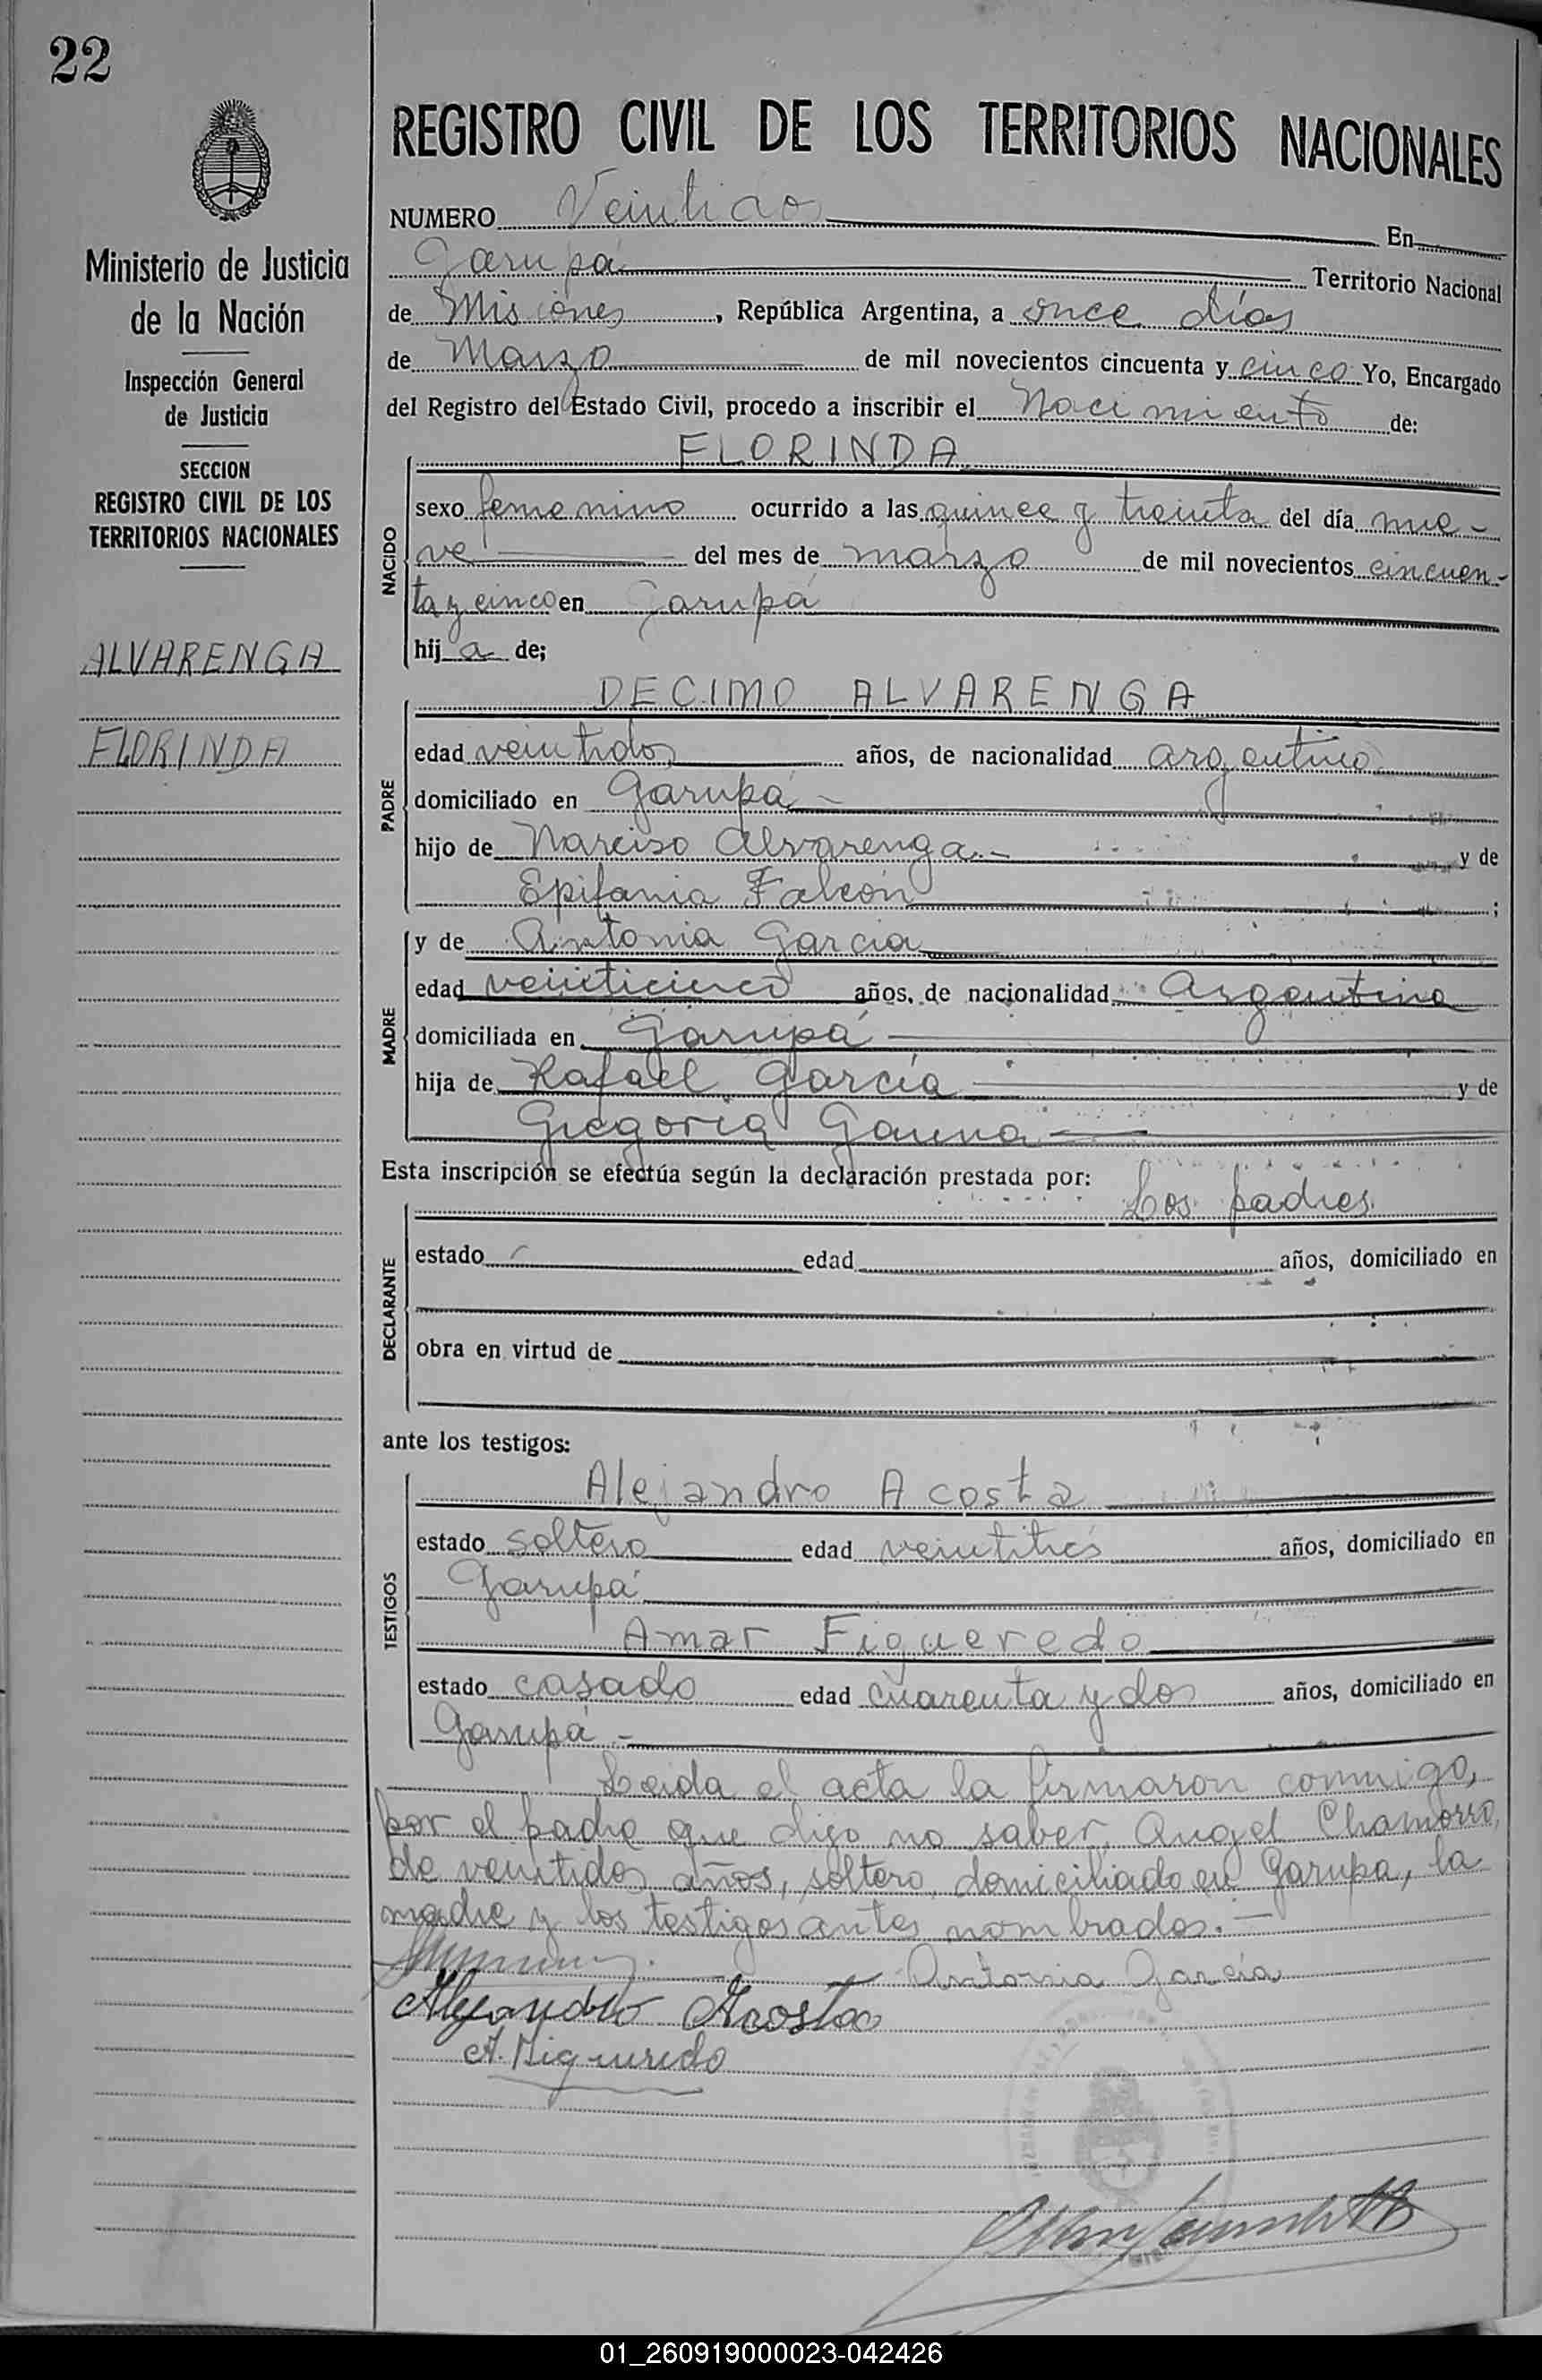 22
Ministerio de Justicia
de la Nación
Inspección General
de Justicia
SECCION
REGISTRO CIVIL DE LOS
TERRITORIOS NACIONALES
ALVARENGA
FLORINDA
REGISTRO CIVIL DE LOS TERRITORIOS NACIONALES
NUMERO Veintidos En
Garupá Territorio Nacional
de Misiones, República Argentina, a once días
de Marzo de mil novecientos cincuenta y cinco Yo, Encargado
del Registro del Estado Civil, procedo a inscribir el Nacimiento de:
NACIDO
FLORINDA
sexo femenino ocurrido a las quince y treinta del día nue-
ve del mes de marzo de mil novecientos cincuen-
ta y cinco en Garupá
hija de;
PADRE
DECIMO ALVARENGA
edad veintidos años, de nacionalidad argentino
domiciliado en Garupá -
hijo de Narciso Alvarenga.- y de
Epifania Falcón ;
MADRE
y de Antonia Garcia
edad veinticinco años, de nacionalidad Argentina
domiciliada en Garupá
hija de Rafael García y de
Gregoria Gauna
Esta inscripción se efectúa según la declaración prestada por:
Los padres
DECLARANTE
estado edad años, domiciliado en
obra en virtud de
ante los testigos:
TESTIGOS
Alejandro Acosta
estado soltero edad veintitrés años, domiciliado en
Garupá
Amar Figueredo
estado casado edad cuarenta y dos años, domiciliado en
Garupá -
Leida el acta la firmaron conmigo,
por el padre que dijo no saber, Angel Chamorro,
de veintidos años, soltero, domiciliado en Garupa, la
madre y los testigos antes nombrados.-
Antonia Garcia
Alejandro Acosta
A. Figueredo
01_260919000023-042426